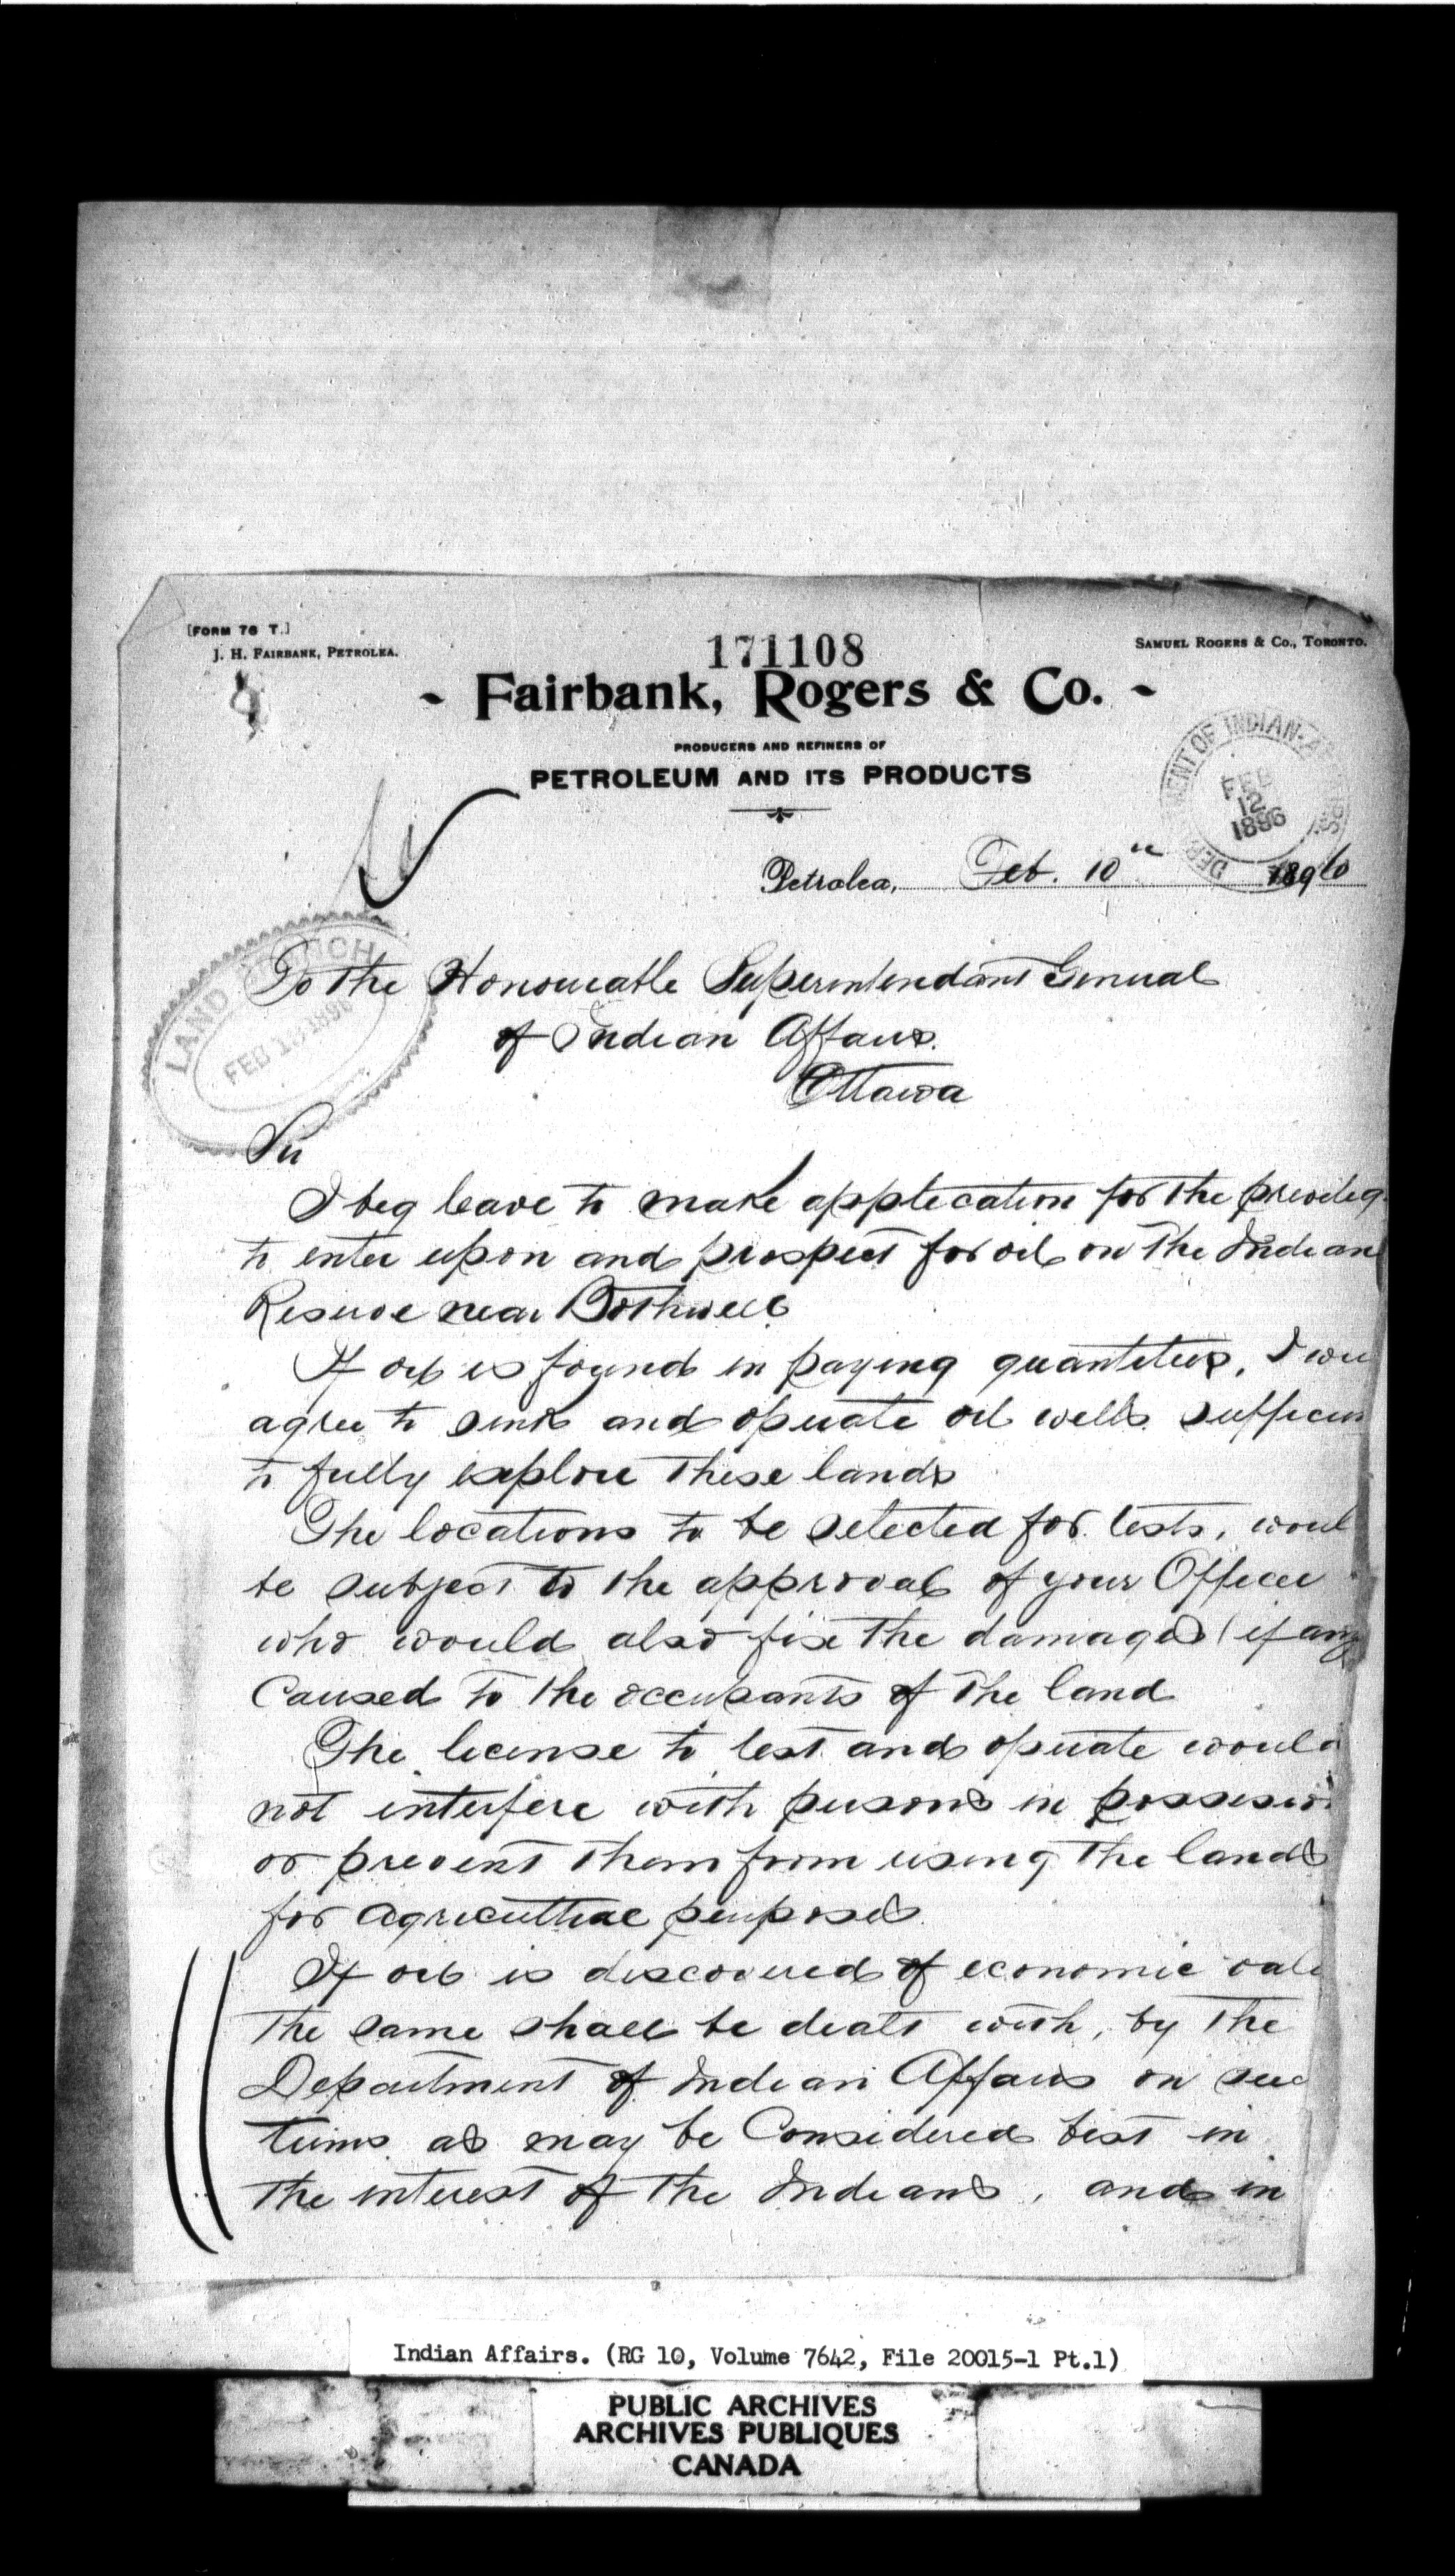 [FORM 76 T.]
J. H. FAIRBANK, PETROLEA.
171108
SAMUEL ROGERS & CO., TORONTO.
- Fairbank, Rogers & Co. -
PRODUCERS AND REFINERS OF
PETROLEUM AND ITS PRODUCTS
DEPARTMENT OF INDIAN AFFAIRS
FEB
12
1896
Petrolea, Feb. 10th 1896
LAND BRANCH
FEB 13 1896
To the Honourable Superintendant General
of Indian Affairs.
Ottawa
Sir
I beg leave to make application for the priveleg
to enter upon and prospect for oil on the Indian
Reserve near Bothwell
If oil is found in paying quantities, I wil
agree to sink and operate oil wells sufficien
to fully explore these lands
The locations to be selected for tests, woul
be subject to the approval of your Officer
who would also fix the damages (if any
Caused to the occupants of the land
The license to test and operate would
not interfere with persons in possessio
or prevent them from using the lands
for agricultural purposes
If oil is discovered of economic valu
the same shall be dealt with, by the
Department of Indian Affairs on suc
terms as may be Considered best in
the interest of the Indians, and in
Indian Affairs. (RG 10, Volume 7642, File 20015-1 Pt.1)
PUBLIC ARCHIVES
ARCHIVES PUBLIQUES
CANADA